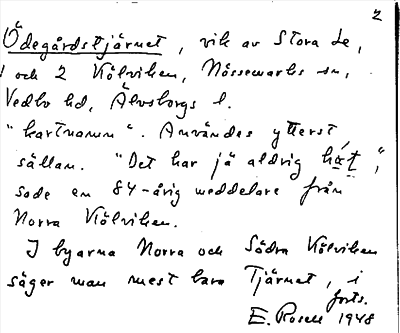 2
Ödegårdstjärnet, vik av Stora Le,
1 och 2 Kölviken, Nössemarks sn,
Vedbo hd, Älvsborgs l.
"kartnamn". Användes ytterst
sällan. "Det har jä aldrig hä́t",
sade en 84-årig meddelare från
Norra Kölviken.
I byarna Norra och Södra Kölviken
säger man mest bara Tjärnet, i
forts.
E. Rosell 1948